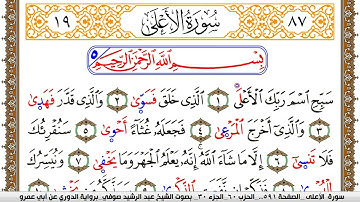 ٨٧ سُورَةُ الْأَعْلَىٰ ١٩
بِسْمِ اللَّهِ الرَّحْمَٰنِ الرَّحِيمِ ٥
سَبِّحِ اسْمَ رَبِّكَ الْأَعْلَى ١ الَّذِي خَلَقَ فَسَوَّىٰ ٢ وَالَّذِي قَدَّرَ فَهَدَىٰ
٣ وَالَّذِي أَخْرَجَ الْمَرْعَىٰ ٤ فَجَعَلَهُ غُثَاءً أَحْوَىٰ ٥ سَنُقْرِئُكَ
فَلَا تَنسَىٰ ٦ إِلَّا مَا شَاءَ اللَّهُ إِنَّهُ يَعْلَمُ الْجَهْرَ وَمَا يَخْفَىٰ ٧ وَنُيَسِّرُكَ
سورة الأعلى الصفحة ٥٩١ الحزب ٦٠ الجزء ٣٠ بصوت الشيخ عبد الرشيد صوفي برواية الدوري عن أبي عمرو